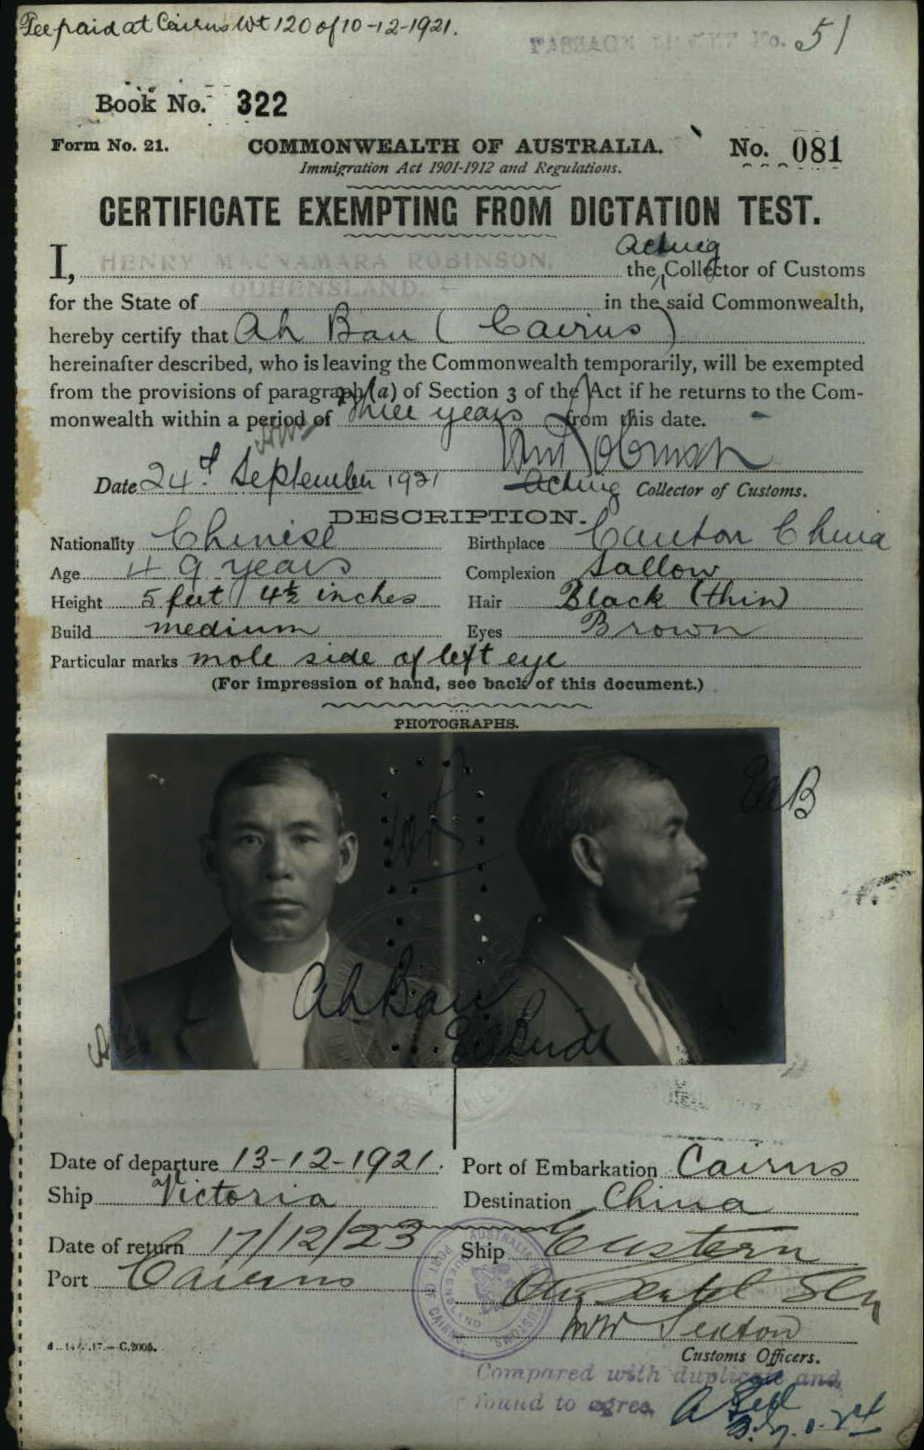 Fee paid at Cairns Wt 120 of 10-12-1921.
PASSAGE No. 51
Book No. 322
Form No. 21. COMMONWEALTH OF AUSTRALIA. No. 081
Immigration Act 1901-1912 and Regulations.
CERTIFICATE EXEMPTING FROM DICTATION TEST.
Acting
I, HENRY MACNAMARA ROBINSON, the Collector of Customs
for the State of QUEENSLAND. in the said Commonwealth,
hereby certify that Ah Bau (Cairns)
hereinafter described, who is leaving the Commonwealth temporarily, will be exempted
from the provisions of paragraph (a) of Section 3 of the Act if he returns to the Com-
monwealth within a period of three years from this date.
Date 24th September 1921 Acting Collector of Customs.
DESCRIPTION.
Nationality Chinese Birthplace Canton China
Age 49 years Complexion Sallow
Height 5 feet 4½ inches Hair Black (thin)
Build medium Eyes Brown
Particular marks mole side of left eye
(For impression of hand, see back of this document.)
PHOTOGRAPHS.
Ah Bau
Date of departure 13-12-1921. Port of Embarkation Cairns
Ship Victoria Destination China
Date of return 17/12/23 Ship Eastern
Port Cairns
Customs Officers.
PORT OF CAIRNS
QUEENSLAND
AUSTRALIA
CUSTOMS
Compared with duplicate and
found to agree